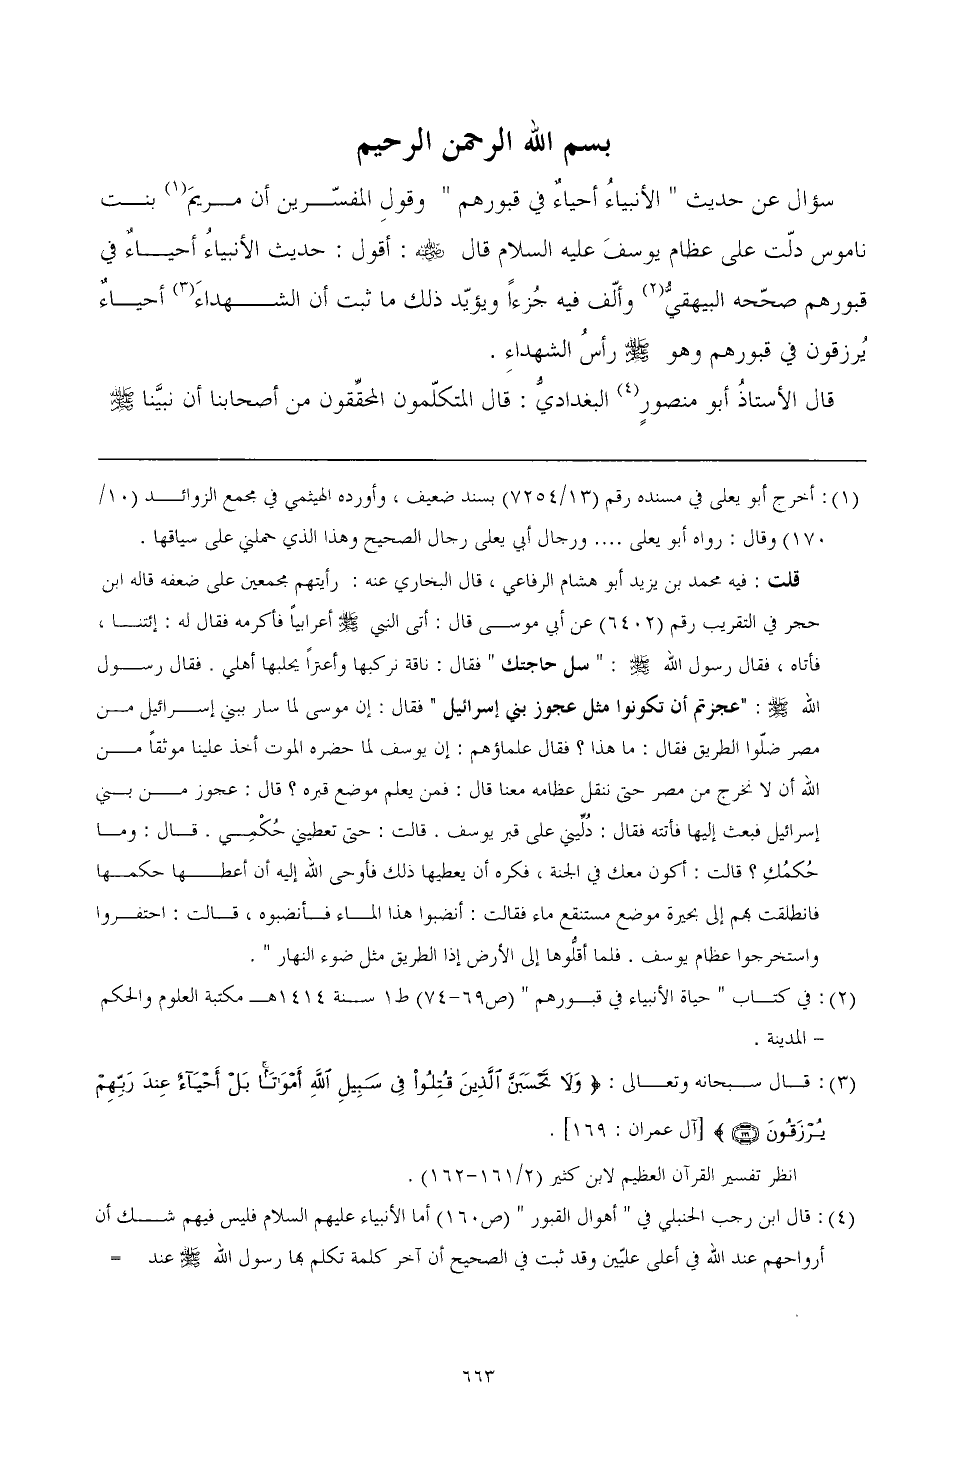 بسم الله الرحمن الرحيم
سؤال عن حديث " الأنبياءُ أحياءٌ في قبورهم " وقولِ المفسّرين أن مريمَ(١) بنت
ناموس دلّت على عظام يوسفَ عليه السلام قال ﷺ : أقول : حديث الأنبياءُ أحياءٌ في
قبورهم صحّحه البيهقيُّ(٢) وألّف فيه جُزءاً ويؤيّد ذلك ما ثبت أن الشهداءَ(٣) أحياءٌ
يُرزقون في قبورهم وهو ﷺ رأسُ الشهداءِ .
قال الأستاذُ أبو منصورٍ(٤) البغداديُّ : قال المتكلّمون المحقِّقون من أصحابنا أن نبيَّنا ﷺ
(١): أخرج أبو يعلى في مسنده رقم (٧٢٥٤/١٣) بسند ضعيف ، وأورده الهيثمي في مجمع الزوائد (١٠/
١٧٠) وقال : رواه أبو يعلى .... ورجال أبي يعلى رجال الصحيح وهذا الذي حملني على سياقها .
قلت : فيه محمد بن يزيد أبو هشام الرفاعي ، قال البخاري عنه : رأيتهم مجمعين على ضعفه قاله ابن
حجر في التقريب رقم (٦٤٠٢) عن أبي موسى قال : أتى النبي ﷺ أعرابياً فأكرمه فقال له : إئتنا ،
فأتاه ، فقال رسول الله ﷺ : " سل حاجتك " فقال : ناقة نركبها وأعنزاً يحلبها أهلي . فقال رسول
الله ﷺ : "عجزتم أن تكونوا مثل عجوز بني إسرائيل " فقال : إن موسى لما سار ببني إسرائيل من
مصر ضلّوا الطريق فقال : ما هذا ؟ فقال علماؤهم : إن يوسف لما حضره الموت أخذ علينا موثقاً من
الله أن لا نخرج من مصر حتى ننقل عظامه معنا قال : فمن يعلم موضع قبره ؟ قال : عجوز من بني
إسرائيل فبعث إليها فأتته فقال : دُلِّيني على قبر يوسف . قالت : حتى تعطيني حُكْمِي . قال : وما
حُكمُكِ ؟ قالت : أكون معك في الجنة ، فكره أن يعطيها ذلك فأوحى الله إليه أن أعطها حكمها
فانطلقت بهم إلى بحيرة موضع مستنقع ماء فقالت : أنضبوا هذا الماء فأنضبوه ، قالت : احتفروا
واستخرجوا عظام يوسف . فلما أقلُّوها إلى الأرض إذا الطريق مثل ضوء النهار " .
(٢): في كتاب " حياة الأنبياء في قبورهم " (ص٦٩-٧٤) ط١ سنة ١٤١٤هـ مكتبة العلوم والحكم
– المدينة .
(٣): قال سبحانه وتعالى : ﴿ وَلَا تَحْسَبَنَّ ٱلَّذِينَ قُتِلُواْ فِى سَبِيلِ ٱللَّهِ أَمْوَٰتَۢا ۚ بَلْ أَحْيَآءٌ عِندَ رَبِّهِمْ
يُرْزَقُونَ ١٦٩ ﴾ [آل عمران : ١٦٩] .
انظر تفسير القرآن العظيم لابن كثير (١٦١/٢-١٦٢) .
(٤): قال ابن رجب الحنبلي في " أهوال القبور " (ص١٦٠) أما الأنبياء عليهم السلام فليس فيهم شك أن
أرواحهم عند الله في أعلى علّيين وقد ثبت في الصحيح أن آخر كلمة تكلم بها رسول الله ﷺ عند =
٦٦٣